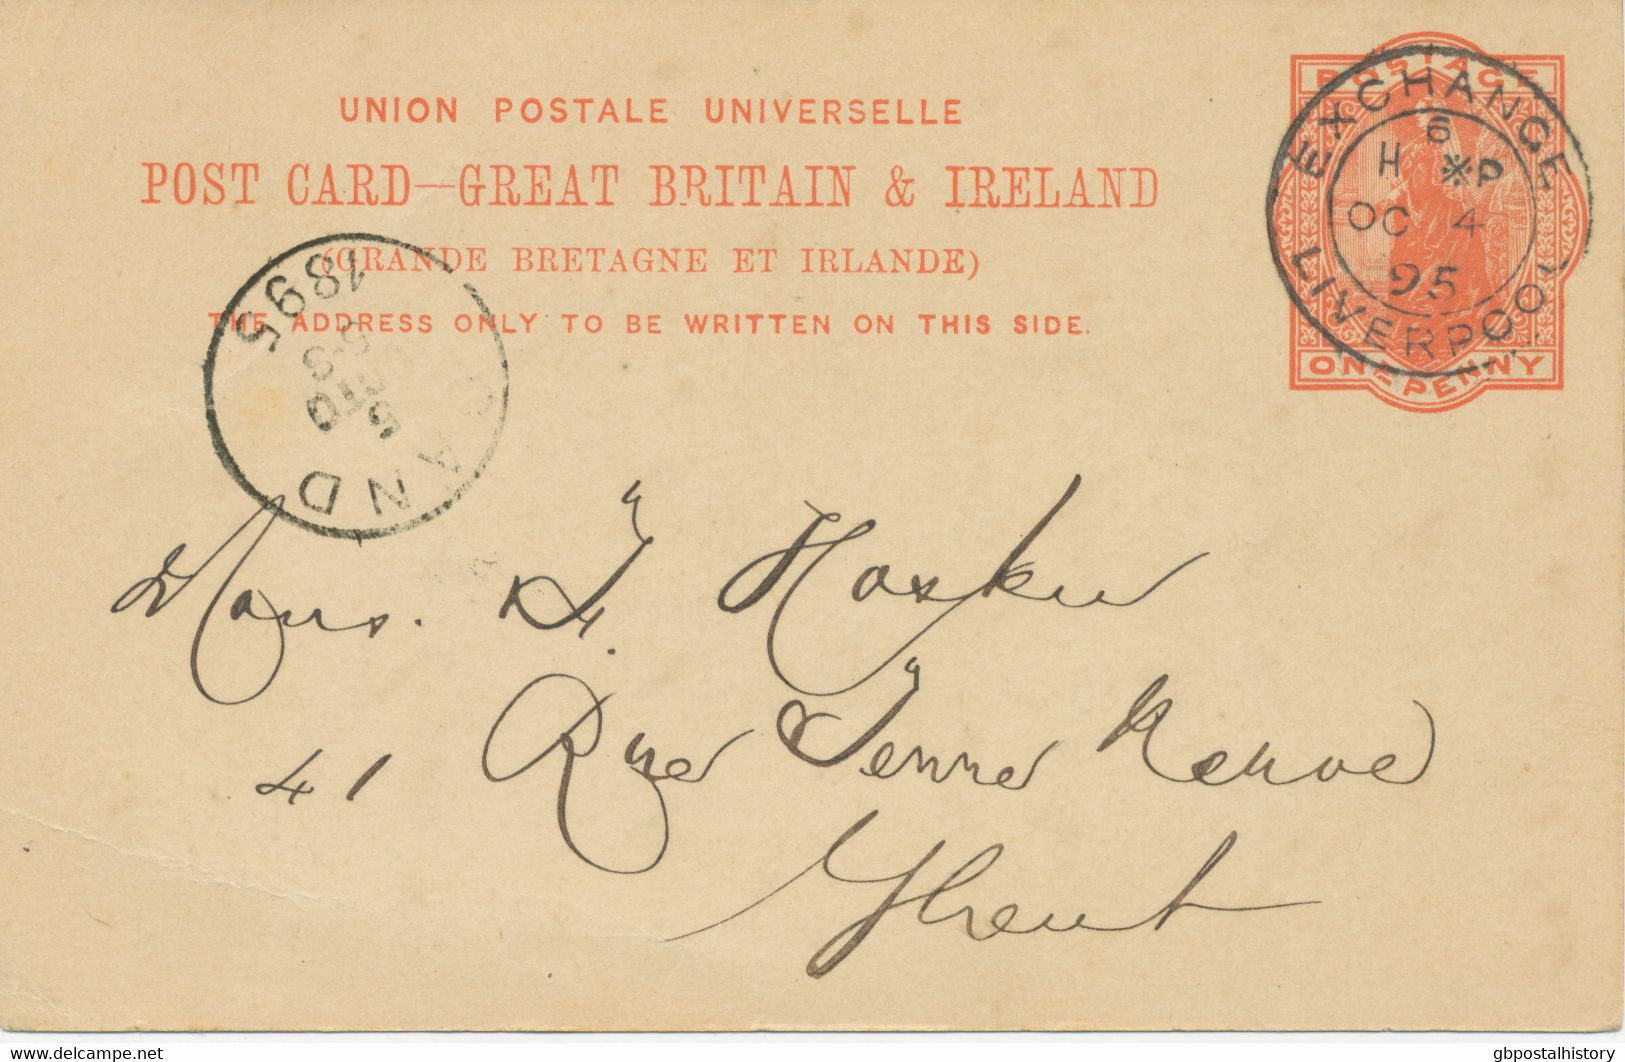 UNION POSTALE UNIVERSELLE
POST CARD—GREAT BRITAIN & IRELAND
(GRANDE BRETAGNE ET IRLANDE)
THE ADDRESS ONLY TO BE WRITTEN ON THIS SIDE.
POSTAGE
ONE PENNY
EXCHANGE
6
H ※P
OC 4
95
LIVERPOOL
GAND
5
1895
Mons.
41 Rue
Ghent
Delcampe.net
gbpostalhistory